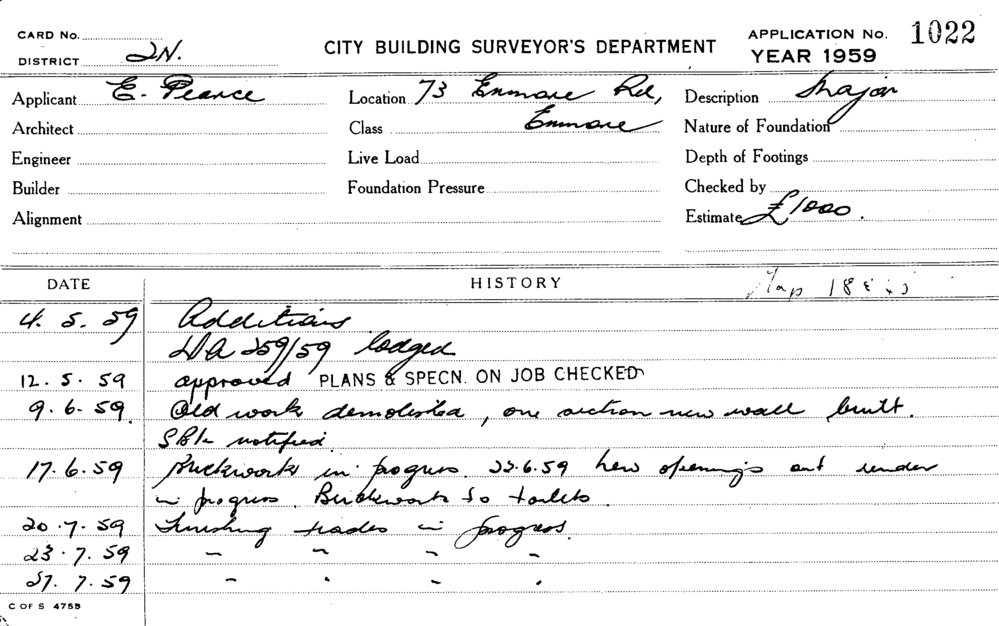 CARD No.
DISTRICT 2N.
CITY BUILDING SURVEYOR'S DEPARTMENT
APPLICATION No. 1022
YEAR 1959
Applicant E. Pearce
Location 73 Enmore Rd,
Description Major
Architect
Class Enmore
Nature of Foundation
Engineer
Live Load
Depth of Footings
Builder
Foundation Pressure
Checked by
Alignment
Estimate £1000.
DATE HISTORY
Map 18
4. 5. 59 Additions
DA 259/59 lodged
12. 5. 59 approved PLANS & SPECN. ON JOB CHECKED
9. 6. 59. Old work demolished, one section new wall built.
notified
17. 6. 59 Brickwork in progress. 22.6.59 new openings and render
in progress. Brickwork to toilets
20. 7. 59 Finishing trades in progress.
23. 7. 59 " " " "
27. 7. 59 " " " "
C OF S 4755